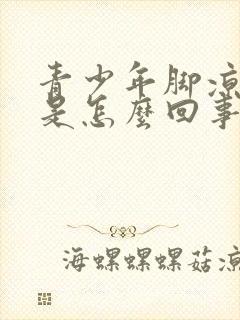 青少年脚凉
是怎麼回事
海螺螺螺菇凉